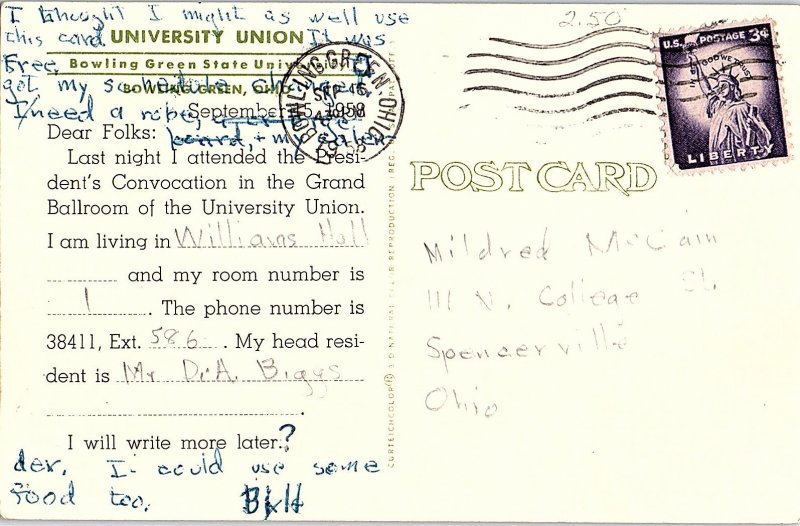 I thought I might as well use
this card It was
UNIVERSITY UNION
Free.
Bowling Green State University
got my schedule changed.
BOWLING GREEN, OHIO
September 15, 1958
I need a rope,
board, +
Dear Folks:
Last night I attended the Presi-
dent's Convocation in the Grand
Ballroom of the University Union.
I am living in Williams Hall
and my room number is
1. The phone number is
38411, Ext. 586. My head resi-
dent is Mr D.A. Biggs
.
I will write more later.?
der. I could use some
food too. Bill
CURTEICHCOLOR
POST CARD
2.50
BOWLING GREEN, OHIO
SEP 16
1958
U.S. POSTAGE 3¢
IN GOD WE TRUST
LIBERTY
Mildred McCain
111 N. College St.
Spencerville
Ohio